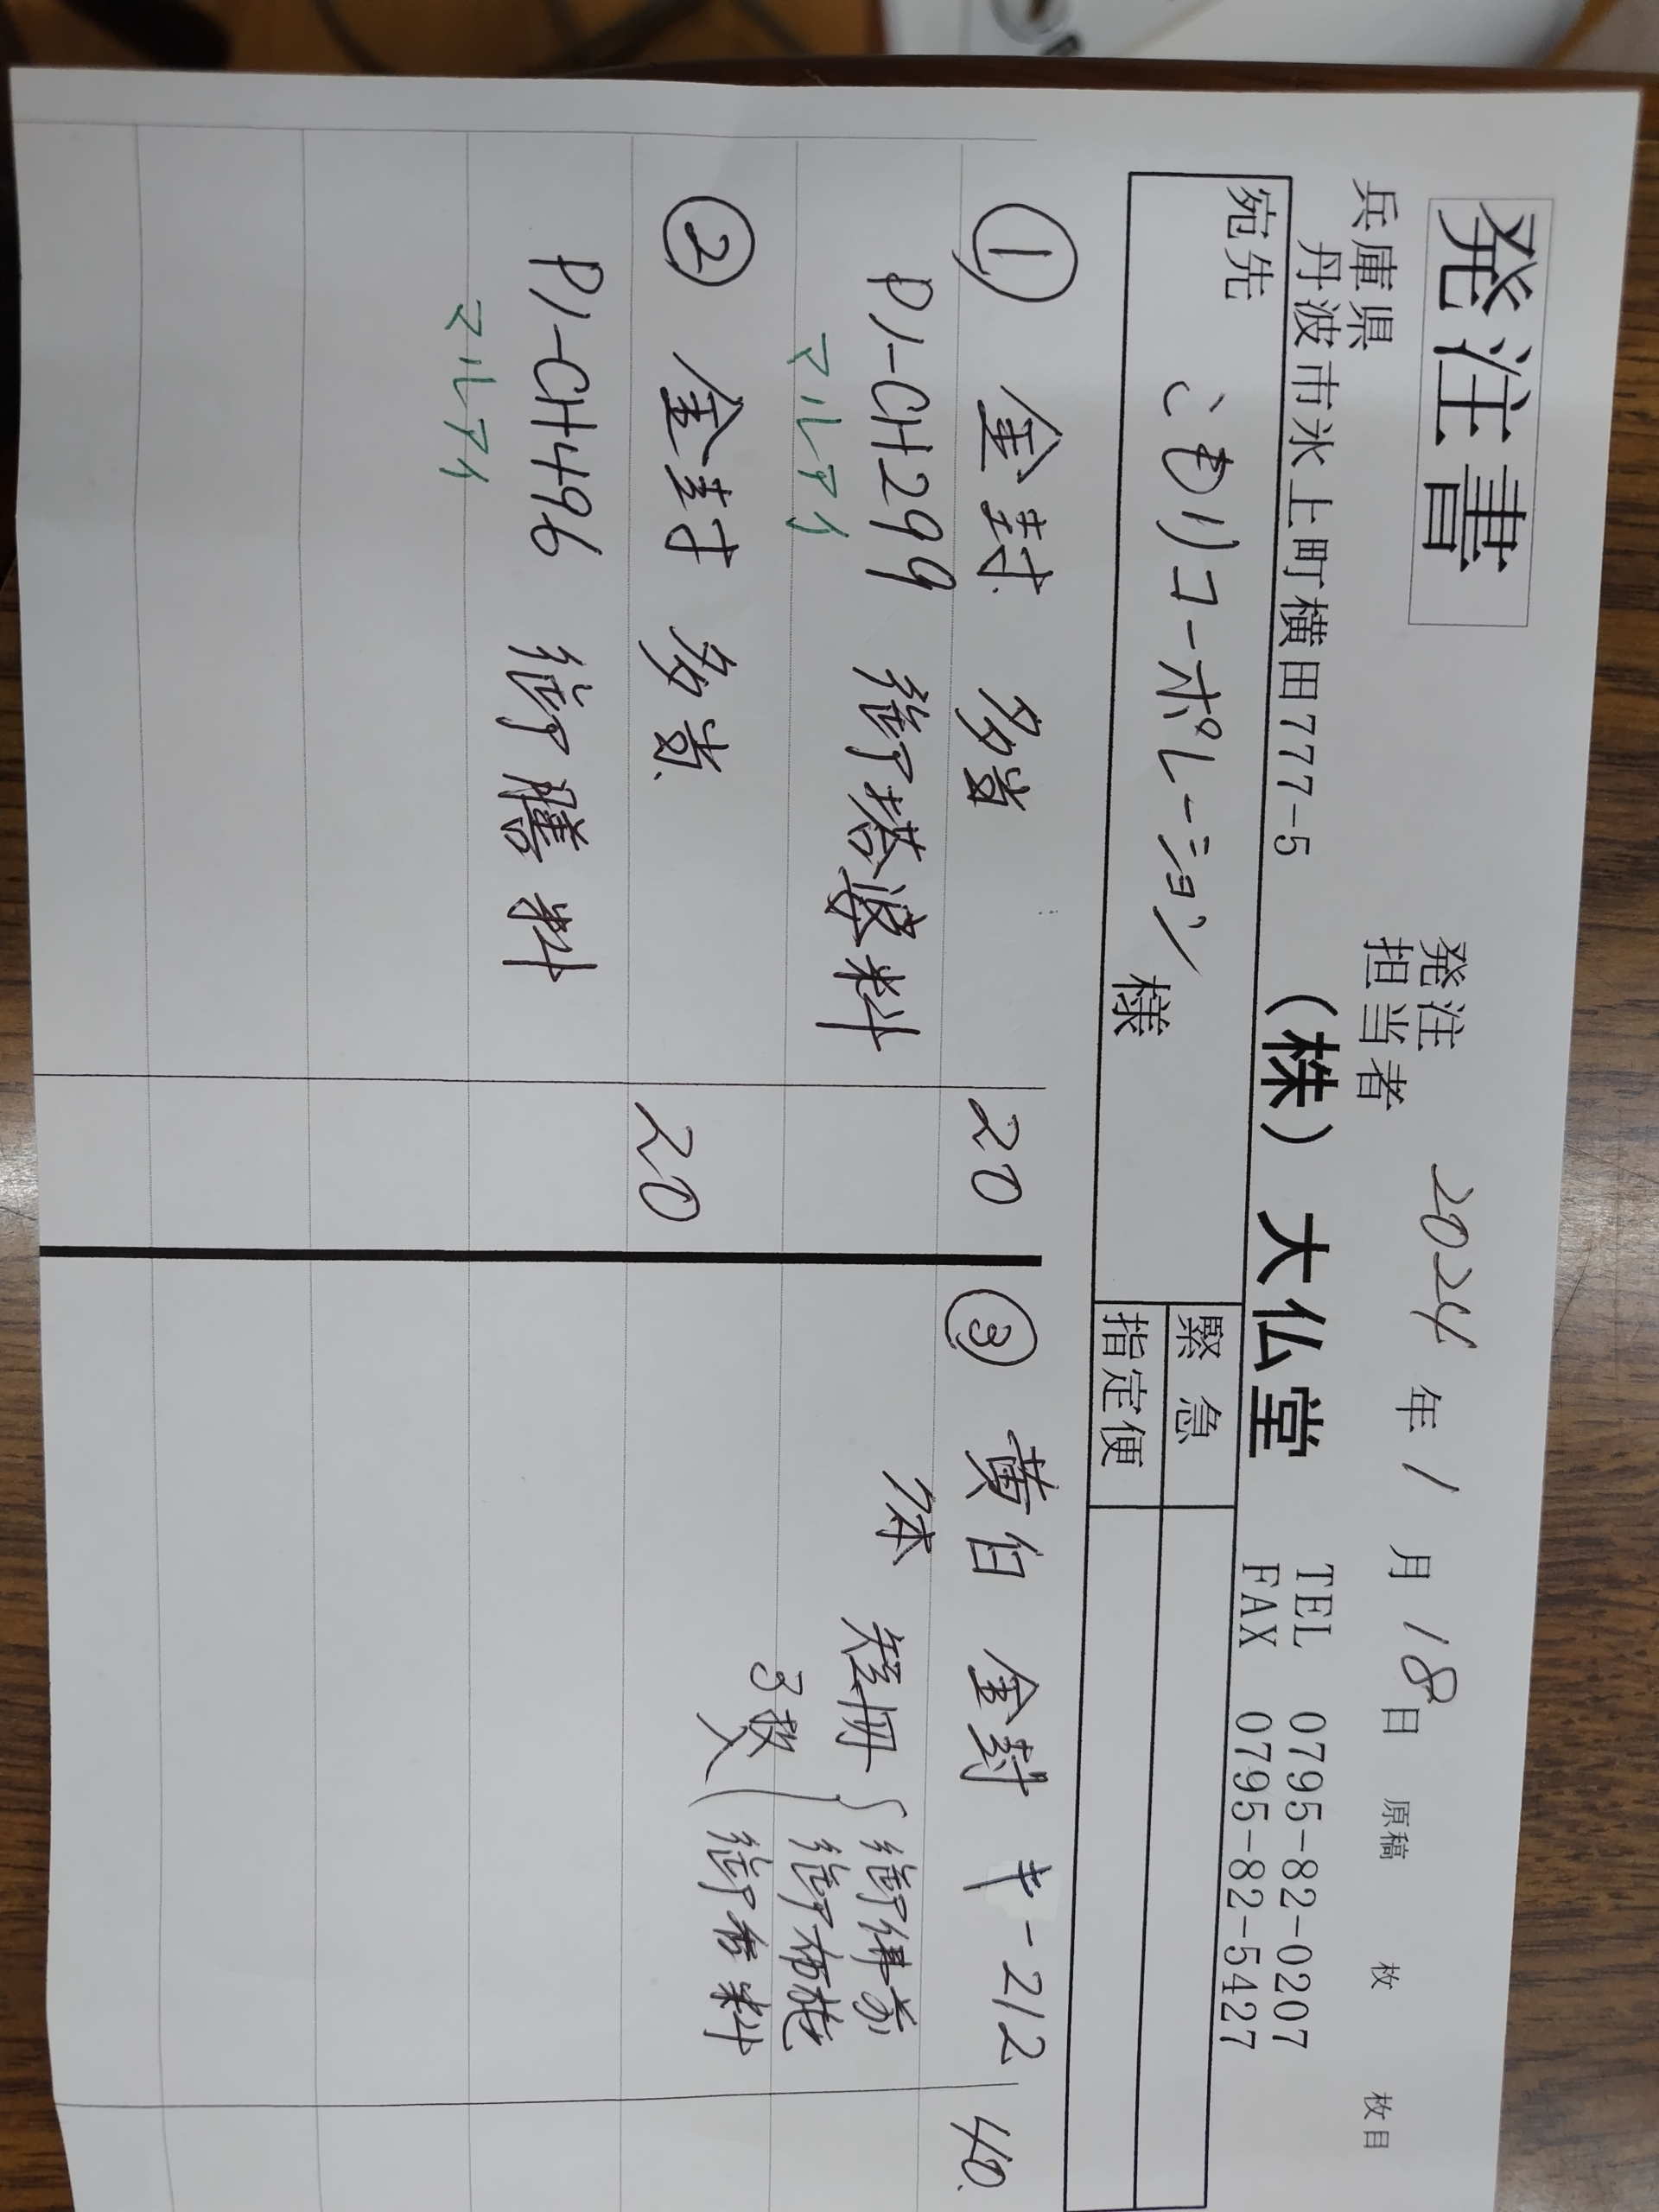 発注書
発注
担当者
2024 年 1 月 18 日 原稿 枚 枚目
兵庫県
丹波市氷上町横田777-5
(株)大仏堂
TEL 0795-82-0207
FAX 0795-82-5427
宛先
こもりコーポレーション 様
緊 急
指定便
① 金封 多当 20
P/-CH299 御塔婆料
マルアイ
② 金封 多當 20
P/-CH496 御膳料
マルアイ
③ 黄白 金封 キ-212 40
体
短冊 御佛前
3枚 御布施
入 御香料